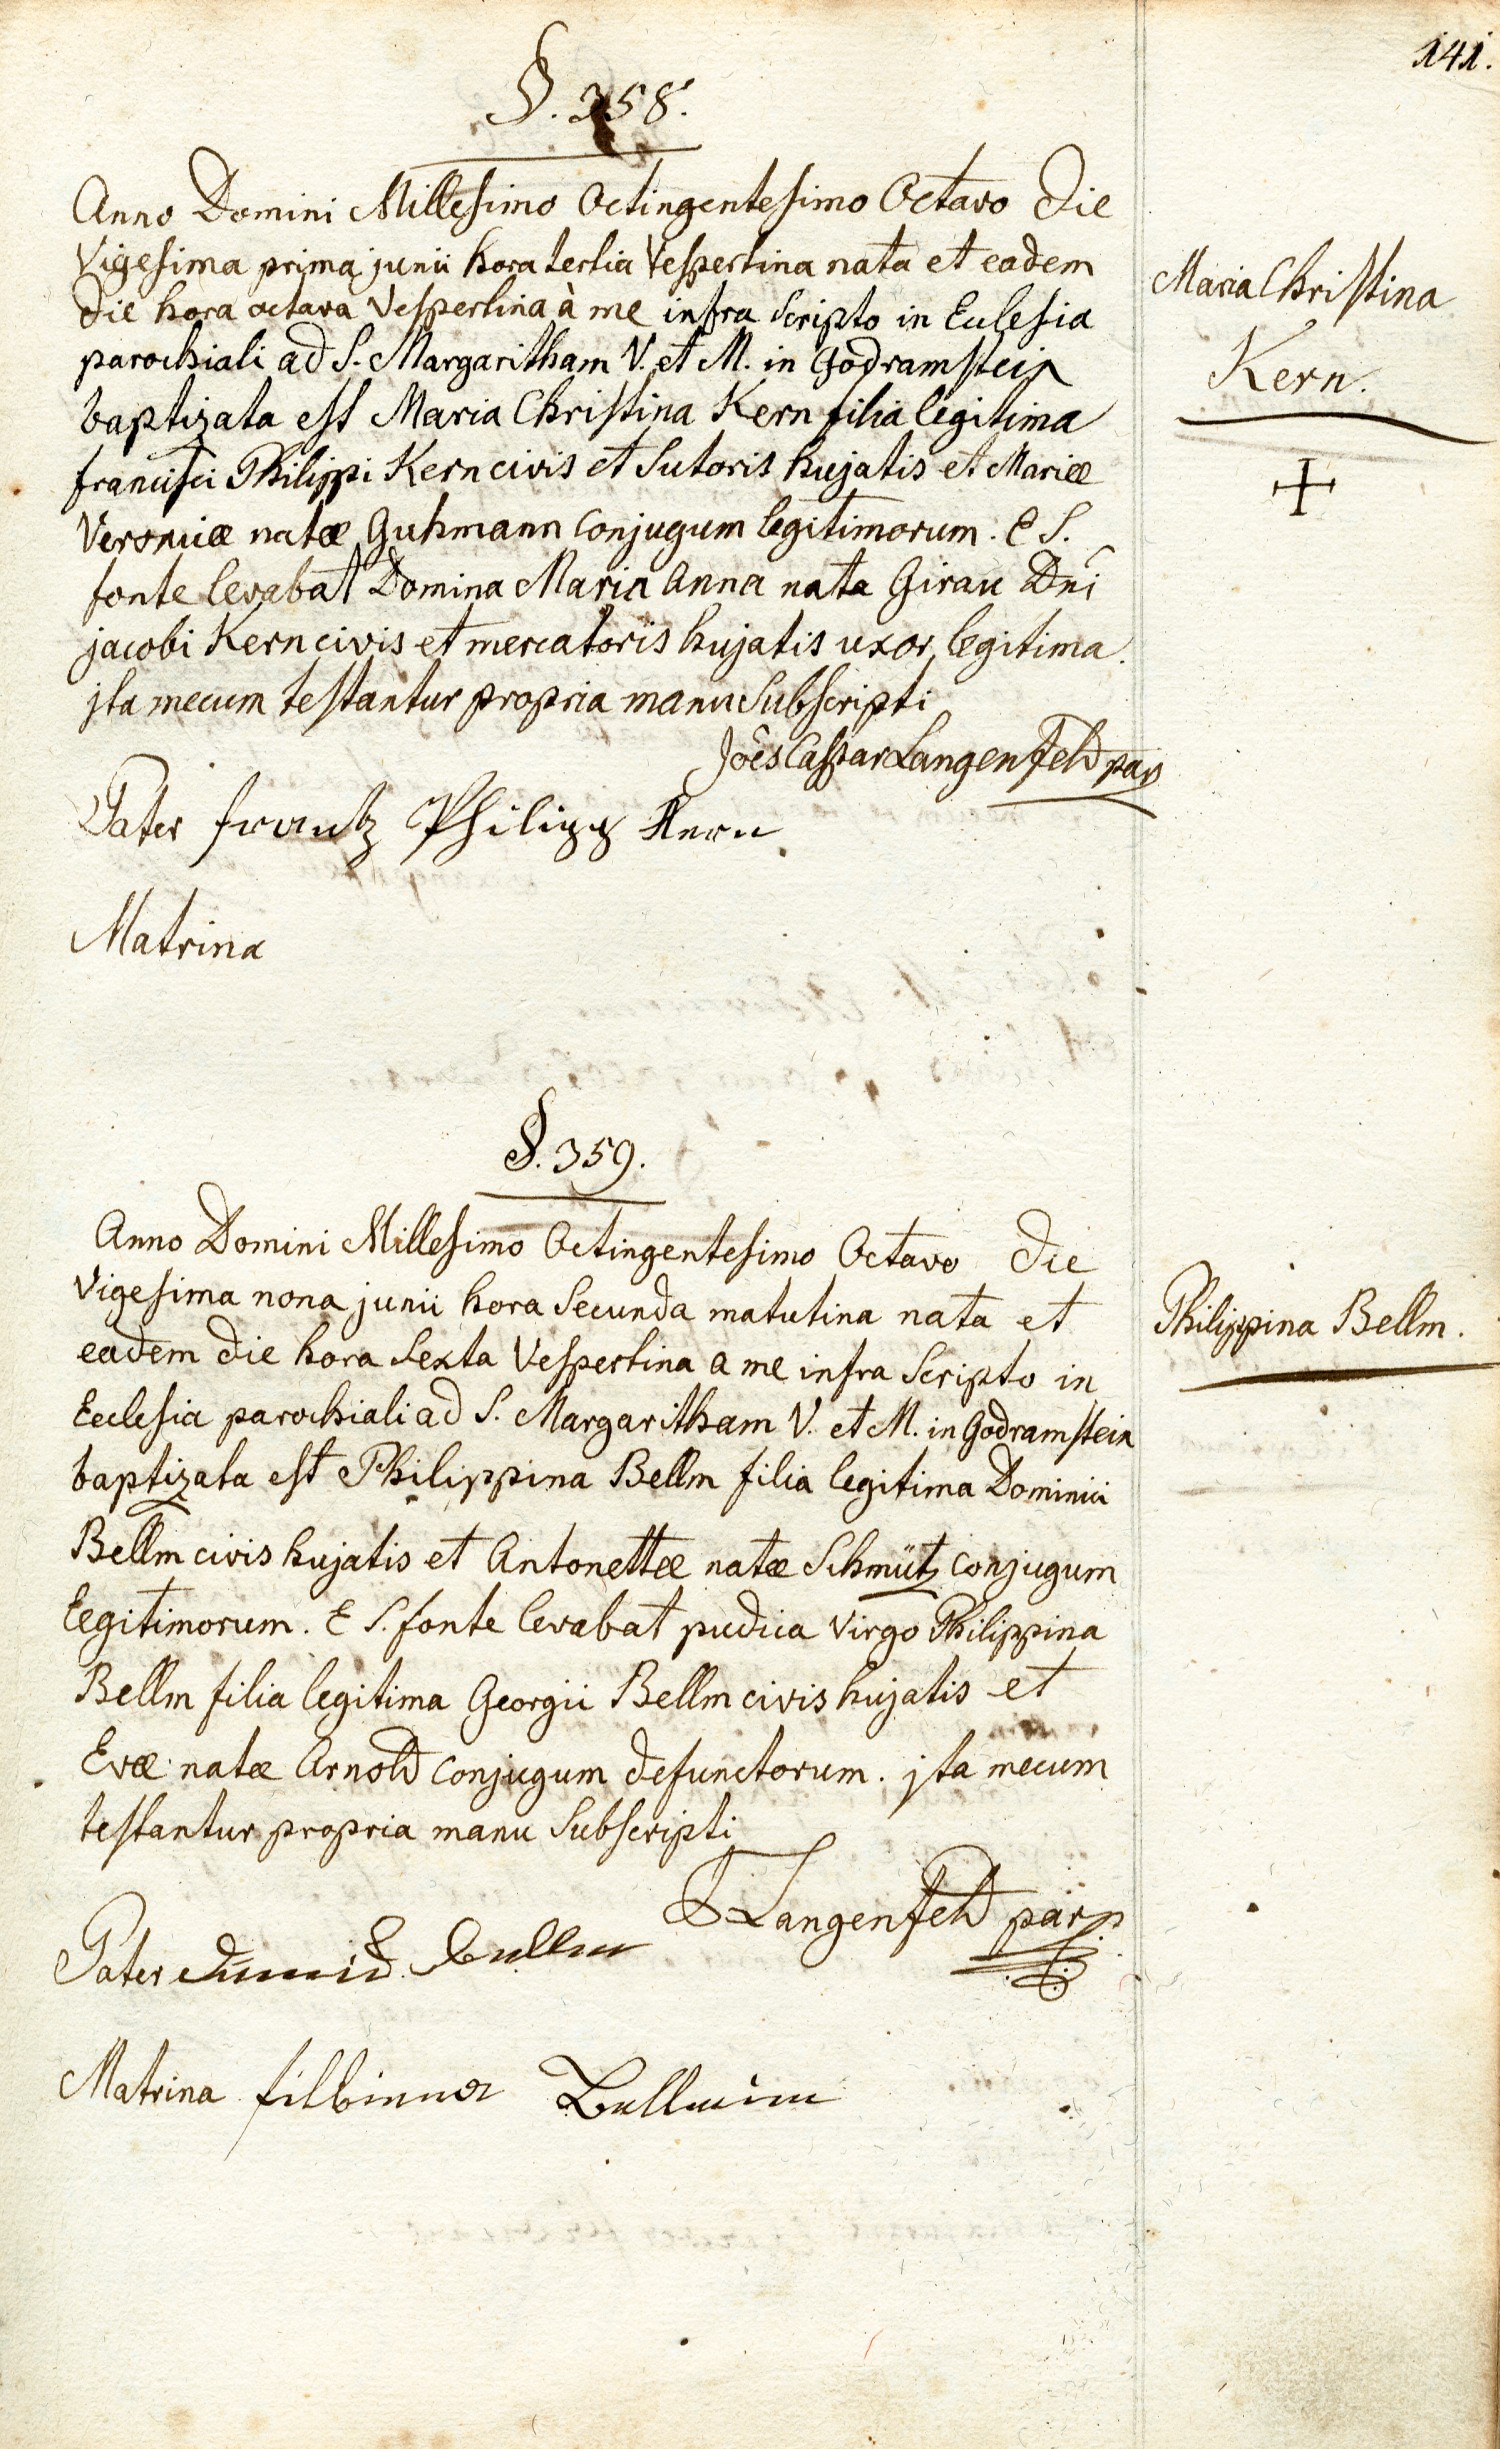 141.
§. 358.
Anno Domini Millesimo Octingentesimo Octavo Die
Vigesima prima junii hora tertia Vespertina nata et eadem
die hora octava Vespertina à me infra Scripto in Eclesia
parochiali ad S. Margaritham V. et M. in Godramstein
baptizata est Maria Christina Kern filia legitima
francisci Philippi Kern civis et Sutoris hujatis et Mariæ
Veronicæ natæ Guhmann Conjugum legitimorum. E S.
fonte levabat Domina Maria Anna nata Girau Dni
jacobi Kern civis et mercatoris hujatis uxor legitima.
jta mecum testantur propria manu Subscripti
Joês Caspar Langenfeld par
Pater frantz Philipp Kern
Matrina
Maria Christina
Kern.
§. 359.
Anno Domini Millesimo Octingentesimo Octavo Die
Vigesima nona junii hora Secunda matutina nata et
eadem die hora Sexta Vespertina a me infra Scripto in
Ecclesia parochiali ad S. Margaritham V. et M. in Godramstein
baptizata est Philippina Bellm filia legitima Dominici
Bellm civis hujatis et Antonettæ natæ Schmütz Conjugum
legitimorum. E S. fonte levabat pudica Virgo Philippina
Bellm filia legitima Georgii Bellm civis hujatis et
Evæ natæ Arnold Conjugum defunctorum. jta mecum
testantur propria manu Subscripti
Langenfeld par
Pater Bellm
Matrina filbinna Bellmin
Philippina Bellm.